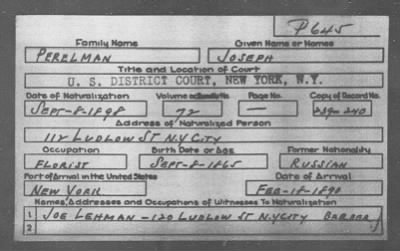 P645
Family Name Given Name or Names
PERELMAN JOSEPH
Title and Location of Court
U. S. DISTRICT COURT, NEW YORK, N.Y.
Date of Naturalization Volume or Bundle No. Page No. Copy of Record No.
SEPT-8-1898 72 — 239M 240
Address of Naturalized Person
112 LUDLOW ST N.Y CITY
Occupation Birth Date or Age Former Nationality
FLORIST SEPT-8-1865 RUSSIAN
Port of Arrival in the United States Date of Arrival
NEW YORK FEB-18-1890
Names, Addresses and Occupations of Witnesses To Naturalization
1 JOE LEHMAN – 120 LUDLOW ST N.Y CITY BARBER
2